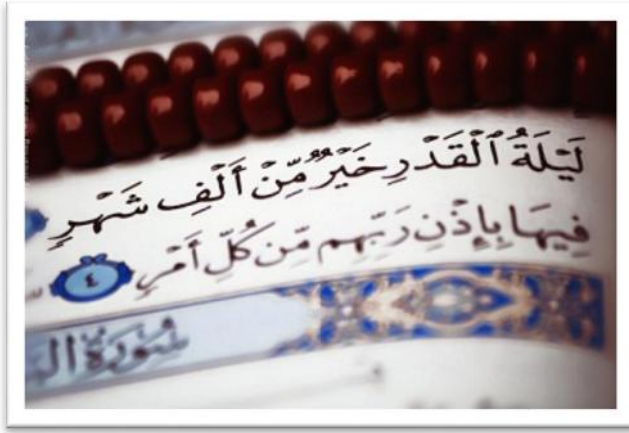 لَيْلَةُ ٱلْقَدْرِ خَيْرٌ مِّنْ أَلْفِ شَهْرٍ
فِيهَا بِإِذْنِ رَبِّهِم مِّن كُلِّ أَمْرٍ ٤
سُورَةُ